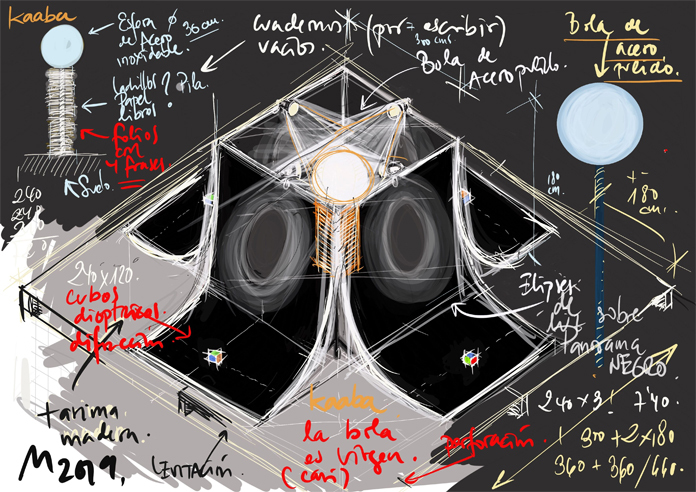 kaaba
Esfera Ø 30 cm.
de Acero
inoxidable
Ladrillos? Pila.
Papel
libros?
folios
con
4 frases.
Suelo.
240
240
cuadernos (por escribir)
vacíos.
300 cms
Bola de
Acero pulido.
Bola de
acero
pulido.
180
cm.
+-
180
cm.
240 x 120.
cubos
dioptricos
difracción
Elipses
de
luz sobre
Panorama
NEGRO
tarima
madera.
M2019.
LEVITACIÓN.
kaaba
la bola
es virgen.
(casi)
perforación.
240 x 3! 7'40.
300 + 2 x 180
360 + 360 / 660.